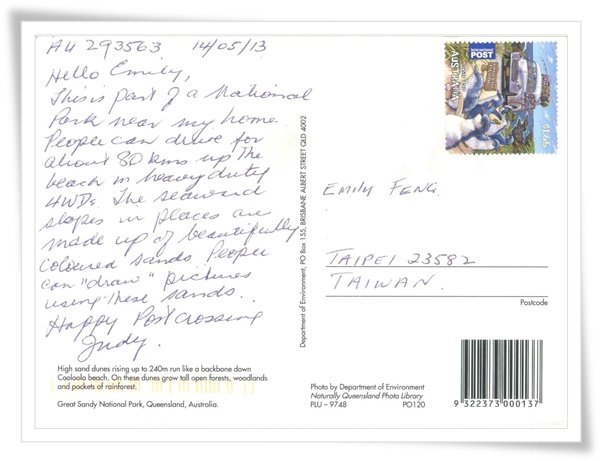 AU 293563 14/05/13
Hello Emily,
This is part of a National
Park near my home.
People can drive for
about 80 kms up the
beach in heavy duty
4WDs. The seaward
slopes in places are
made up of beautifully
coloured sands. People
can "draw" pictures
using these sands.
Happy Postcrossing
Judy.
High sand dunes rising up to 240m run like a backbone down
Cooloola beach. On these dunes grow tall open forests, woodlands
and pockets of rainforest.
Great Sandy National Park, Queensland, Australia.
Department of Environment, PO Box 155, BRISBANE ALBERT STREET QLD 4002
International
POST
AUSTRALIA
$1.65
EMILY FENG
TAIPEI 23582
TAIWAN.
Postcode
Photo by Department of Environment
Naturally Queensland Photo Library
PLU – 9748 PO120
9 322373 000137